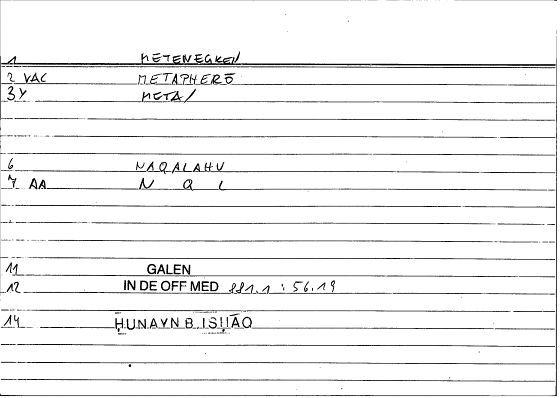 1 METENEGKEN
2 VAC METAPHERŌ
3 Y META/
6 NAQALAHU
7 AA N Q L
11 GALEN
12 IN DE OFF MED 881.1 : 56.19
14 ḤUNAYN B. ISḤĀQ